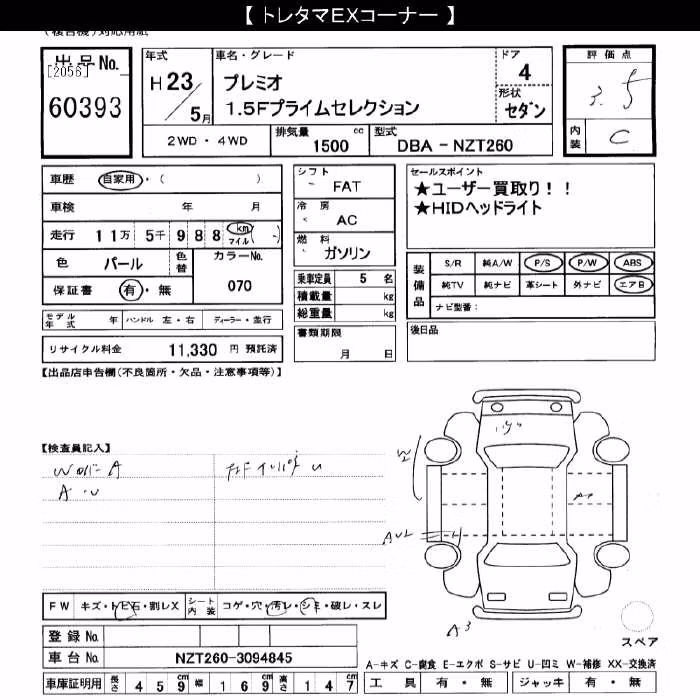 【 トレタマEXコーナー 】
出品No.
[2056]
60393
年式
H 23/5月
車名・グレード
プレミオ
1.5Fプライムセレクション
ドア
4
形状
セダン
評価点
3.5
内装
C
2WD・4WD
排気量 1500 cc
型式 DBA－NZT260
車歴 自家用・( )
車検 年 月
走行 11万 5千 9 8 8 km マイル ( )
色 パール
色替
カラーNo. 070
保証書 有・無
シフト FAT
冷房 AC
燃料 ガソリン
乗車定員 5 名
積載量 kg
総重量 kg
セールスポイント
★ユーザー買取り！！
★HIDヘッドライト
装備品
S/R 純A/W P/S P/W ABS
純TV 純ナビ 革シート 外ナビ エアB
ナビ型番：
モデル年式 年 ハンドル 左・右 ディーラー・並行
リサイクル料金 11,330 円 預託済
書類期限
月 日
後日品
【出品店申告欄(不良箇所・欠品・注意事項等)】
【検査員記入】
A・U
W2
A3
FW キズ・トビ石・割レX
シート内装 コゲ・穴・汚レ・シミ・破レ・スレ
登録No.
車台No. NZT260-3094845
車庫証明用 長さ 459 幅 169 高さ 147
スペア
A-キズ C-腐食 E-エクボ S-サビ U-凹ミ W-補修 XX-交換済
工具 有・無 ジャッキ 有・無